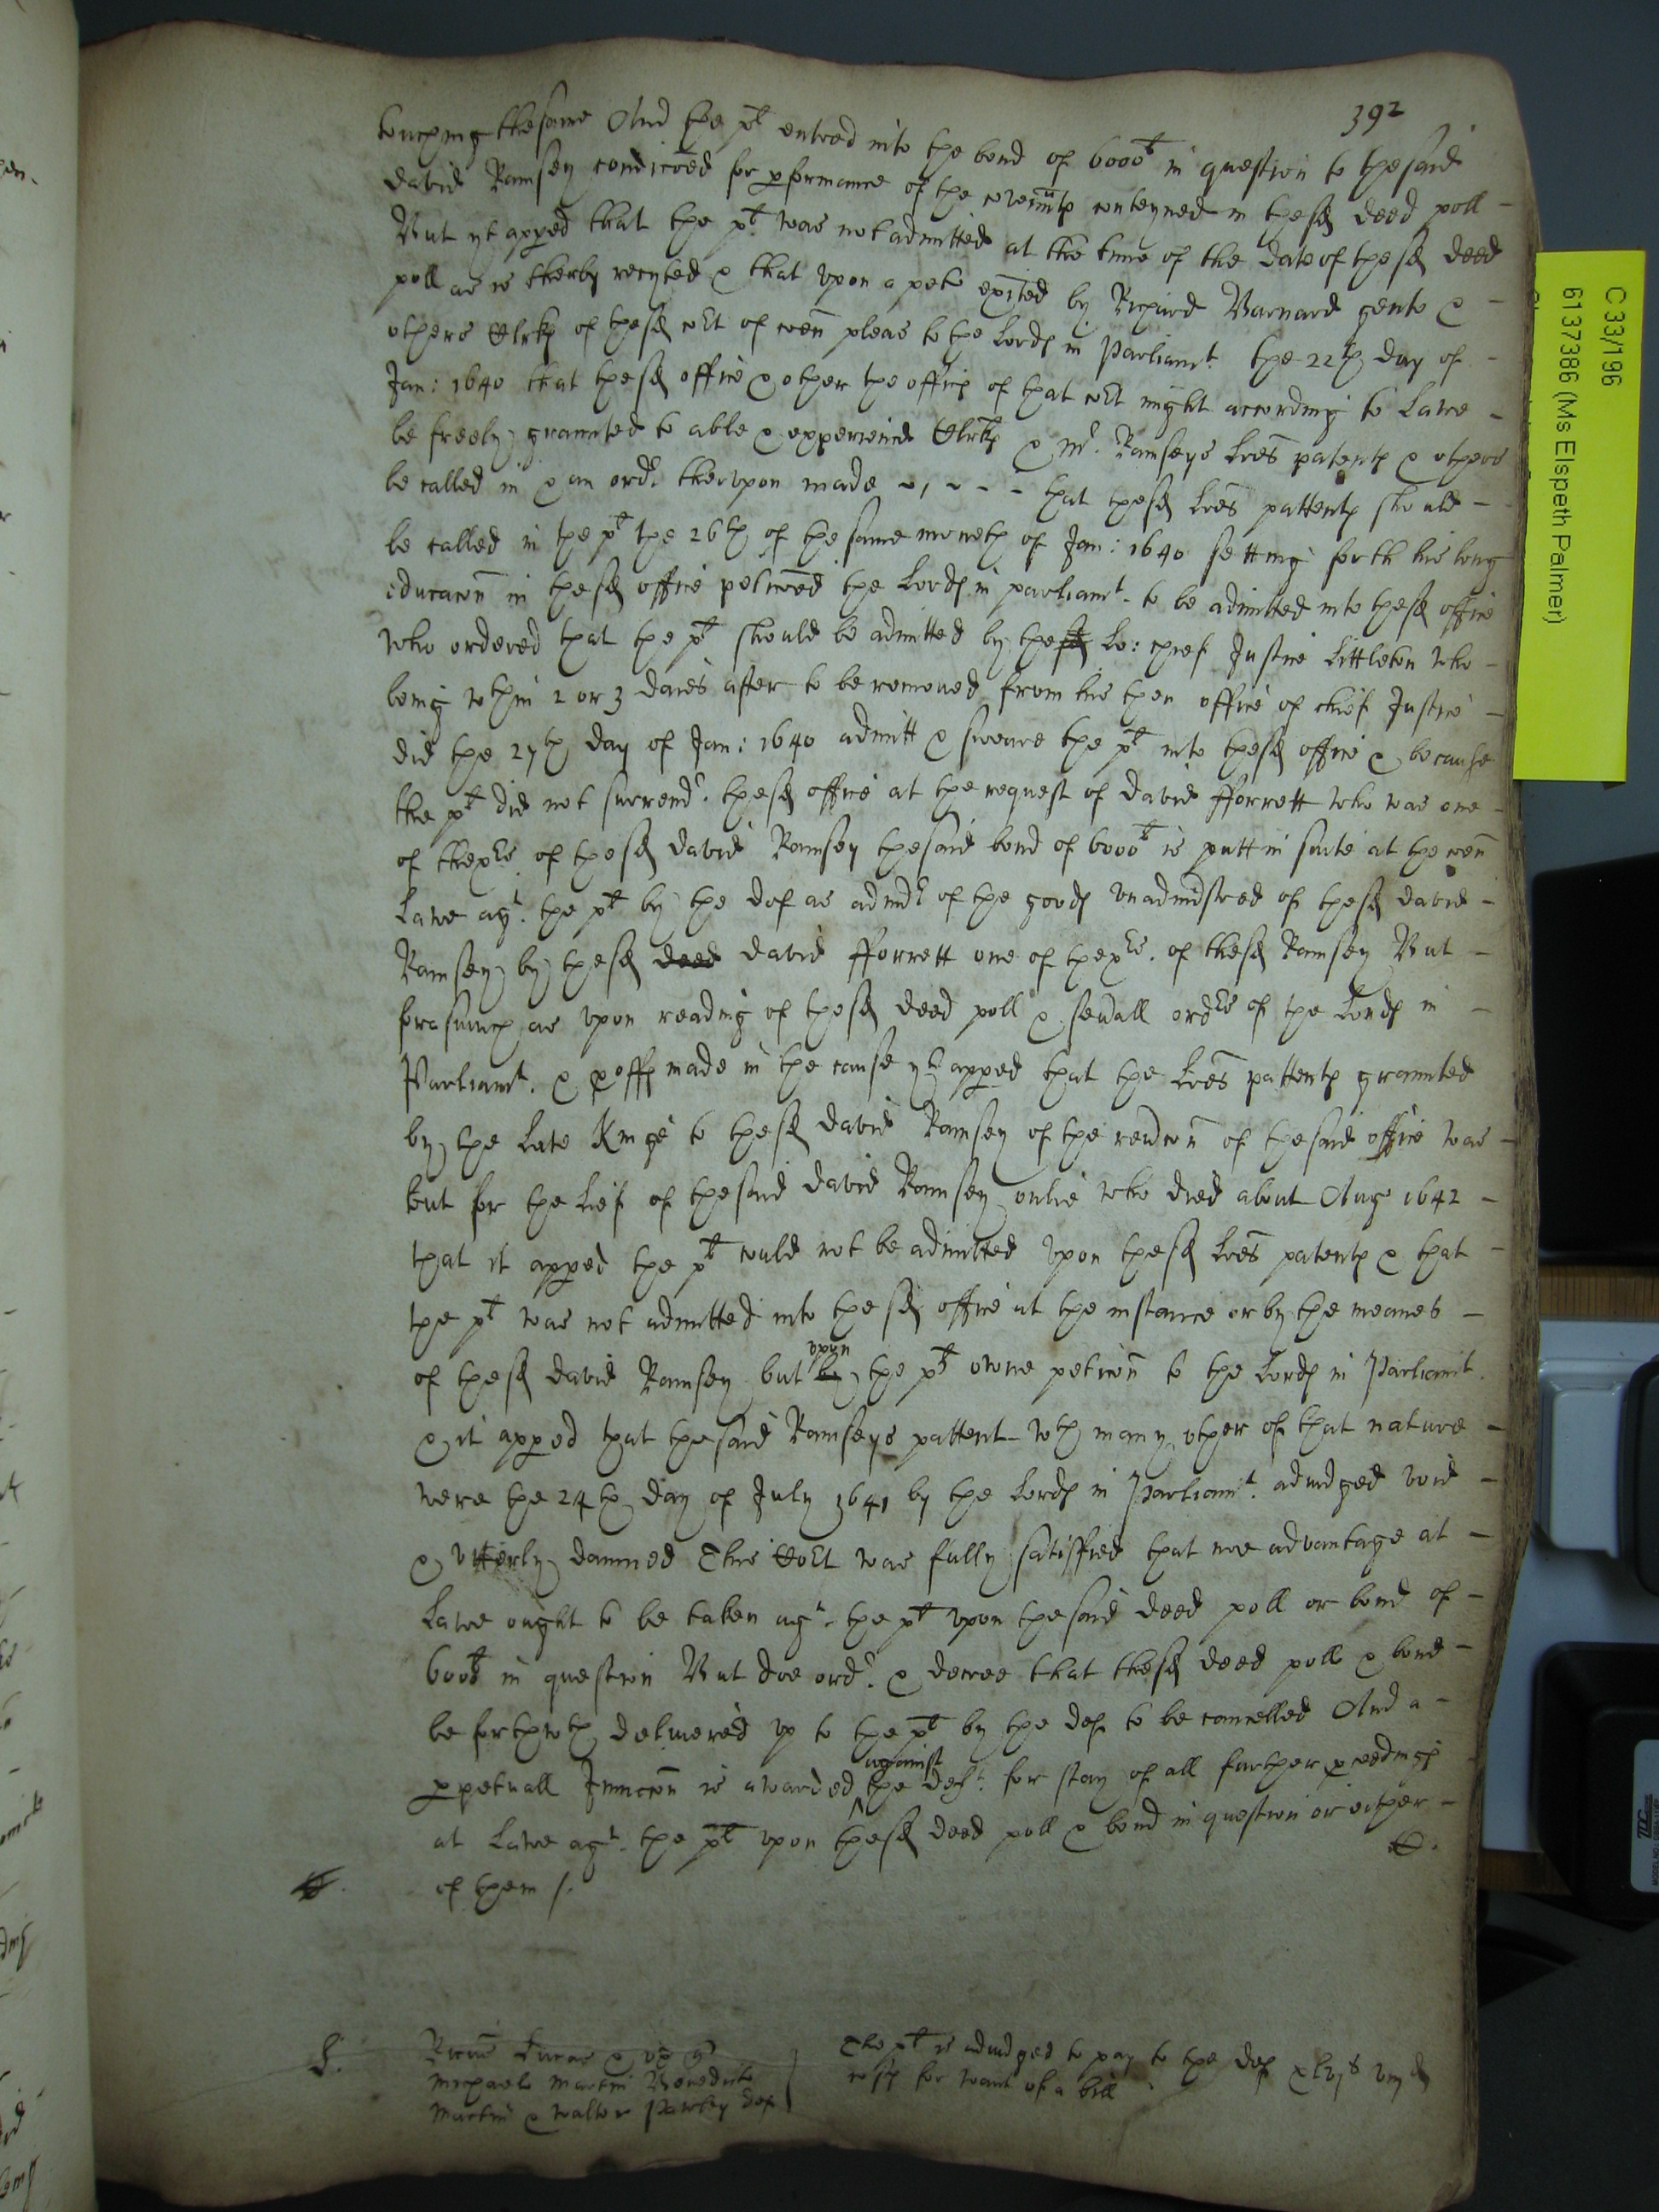 392
touching the same And the plt entred into the bond of 6000l in question to the said
David Ramsey condiconed for pformance of the covennts conteyned in the sd deed poll -
But yt appeed that the plt was not admitted at the time of the date of the sd deed
poll as is therby recyted & that vpon a peto exited by Richard Barnard gente & -
others Clrks of the sd cort of coen pleas to the Lords in Parliamt the 22th day of -
Jan: 1640 that the sd office & other the offices of that cort might according to Lawe -
be freely graunted to able & experienced Clrks & mr Ramseys Lres patents & others
be called in & an ordr thervpon made - - - - that the sd Lres pattents should -
be called in the plt the 26th of the same moneth of Jan: 1640 setting forth his long
educacon in the sd office peticoned the Lords in parliamt to be admitted into the sd office
who ordered that the plt should be admitted by the sd Lo: chief Justice Littleton who -
being wthin 2 or 3 daies after to be remoued from his then office of chief Justice -
did the 27th day of Jan: 1640 admitt & sweare the plt into the sd office & because
the plt did not surrendr the sd office at the request of David fforrett who was one -
of thexrs of the sd David Ramsey the said bond of 6000l is putt in suite at the coen
Lawe agt the plt by the def as admr of the goods vnadmistred of the sd David -
Ramsey by the sd deed David fforrett one of thexrs of the sd Ramsey But -
forasmuch as vpon reading of the sd deed poll & seuall ordrs of the Lords in -
Parliamt & proffs made in the cause yt appeed that the Lres pattents graunted
by the Late Kinge to the sd David Ramsey of the reucon of the said office was -
but for the Lief of the said David Ramsey onlie who died about Aug 1642 -
that it appeed the plt could not be admitted vpon the sd Lres patents & that -
the plt was not admitted into the sd office at the instance or by the meanes -
of the sd David Ramsey but by vpon the plt owne peticon to the Lords in Parliamt
& it appeed that the said Ramseys pattent wth many other of that nature -
were the 24th day of July 1641 by the Lords in Parliamt adiudged void -
& vtterly damned This Cort was fully satisfied that noe advantage at -
Lawe ought to be taken agt the plt vpon the said deed poll or bond of -
6000l in question But doe ordr & decree that the sd deed poll & bond -
be forthwth deliuered vp to the plt by the def to be cancelled And a -
ppetuall Iniuncon is awarded against the deft for stay of all further pceedings
at Lawe agt the plt vpon the sd deed poll & bond in question or either -
of them /.
Lucas & vx
Michael Martin Benedict
Martin & Walter def
The plt is adiudged to pay to the def
costs for want of a bill
C 33/196
6137386 (Ms Elspeth Palmer)